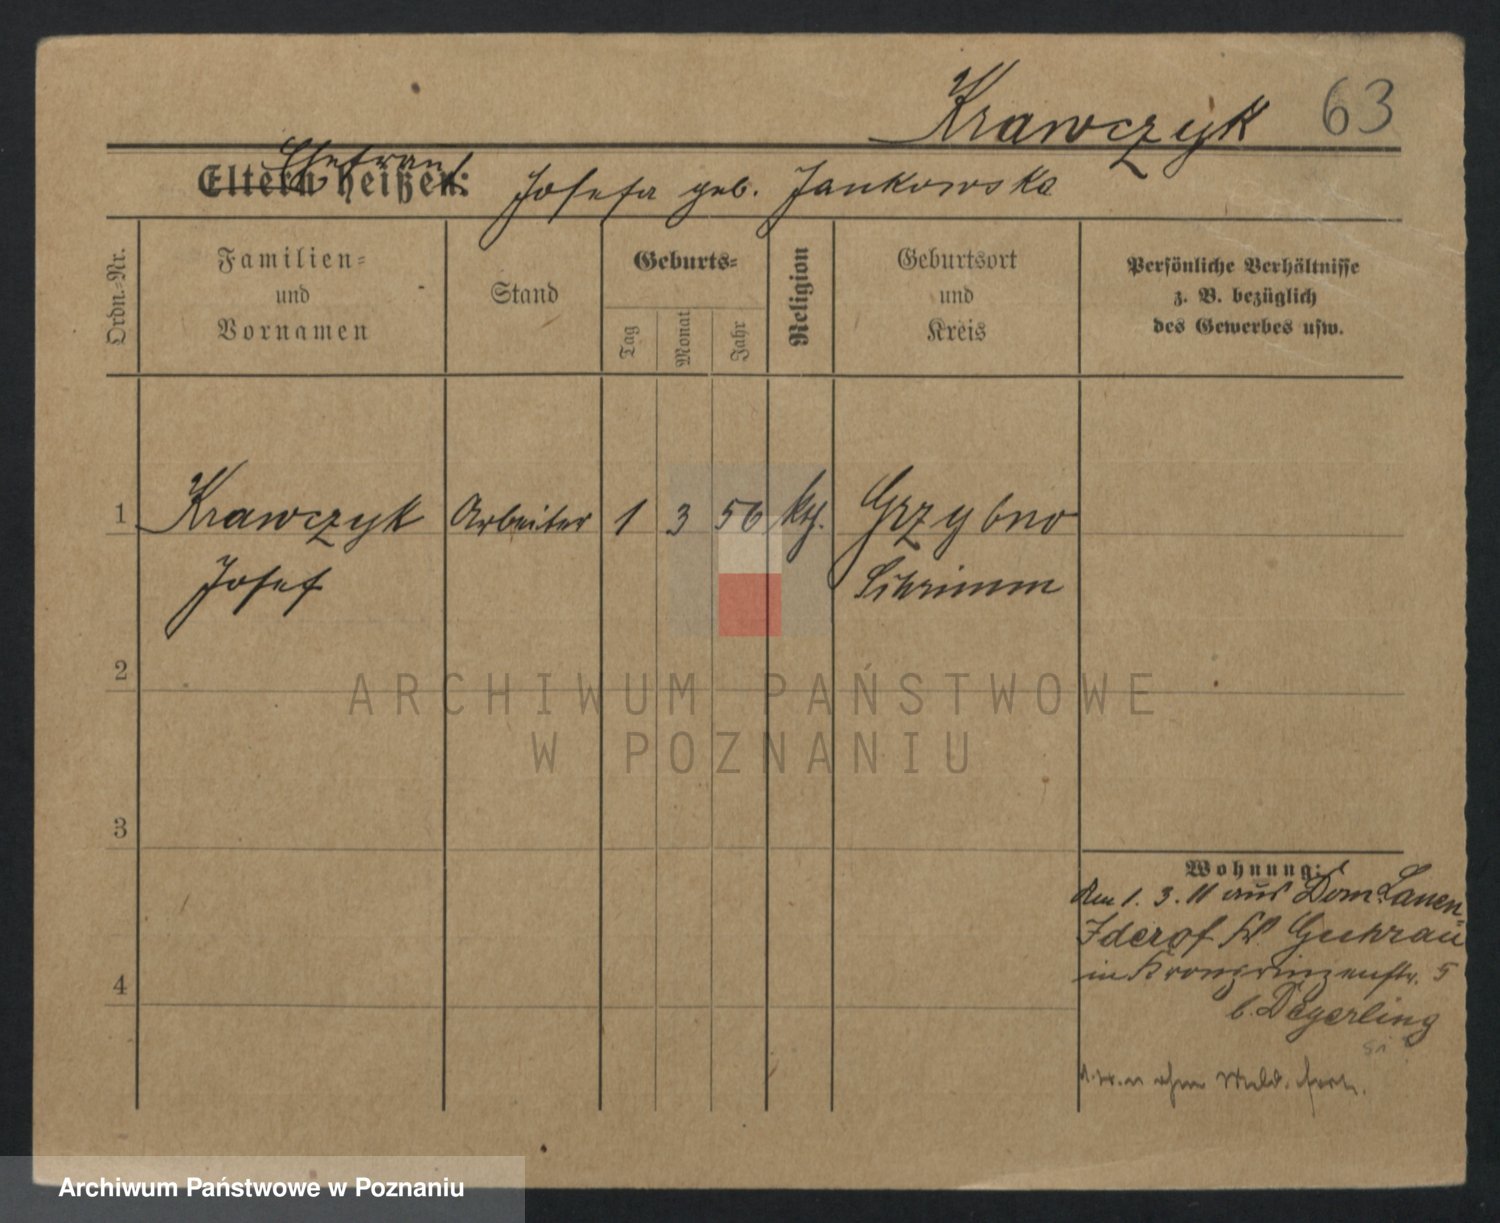 Krawczyk 63
Ehefrau
Eltern heißen: Josefa geb. Jankowska
Ordn.-Nr.
Familien-
und
Vornamen
Stand
Geburts-
Tag
Monat
Jahr
Religion
Geburtsort
und
Kreis
Persönliche Verhältnisse
z. B. bezüglich
des Gewerbes usw.
1 Krawczyk Arbeiter 1 3 56 kth. Grzybno
Josef Schrimm
2
ARCHIWUM PAŃSTWOWE
W POZNANIU
3
Wohnung:
Den 1. 3. 11 aus Dom.
Guhrau
in Kronprinzenstr. 5
b. Degerling
4
Archiwum Państwowe w Poznaniu